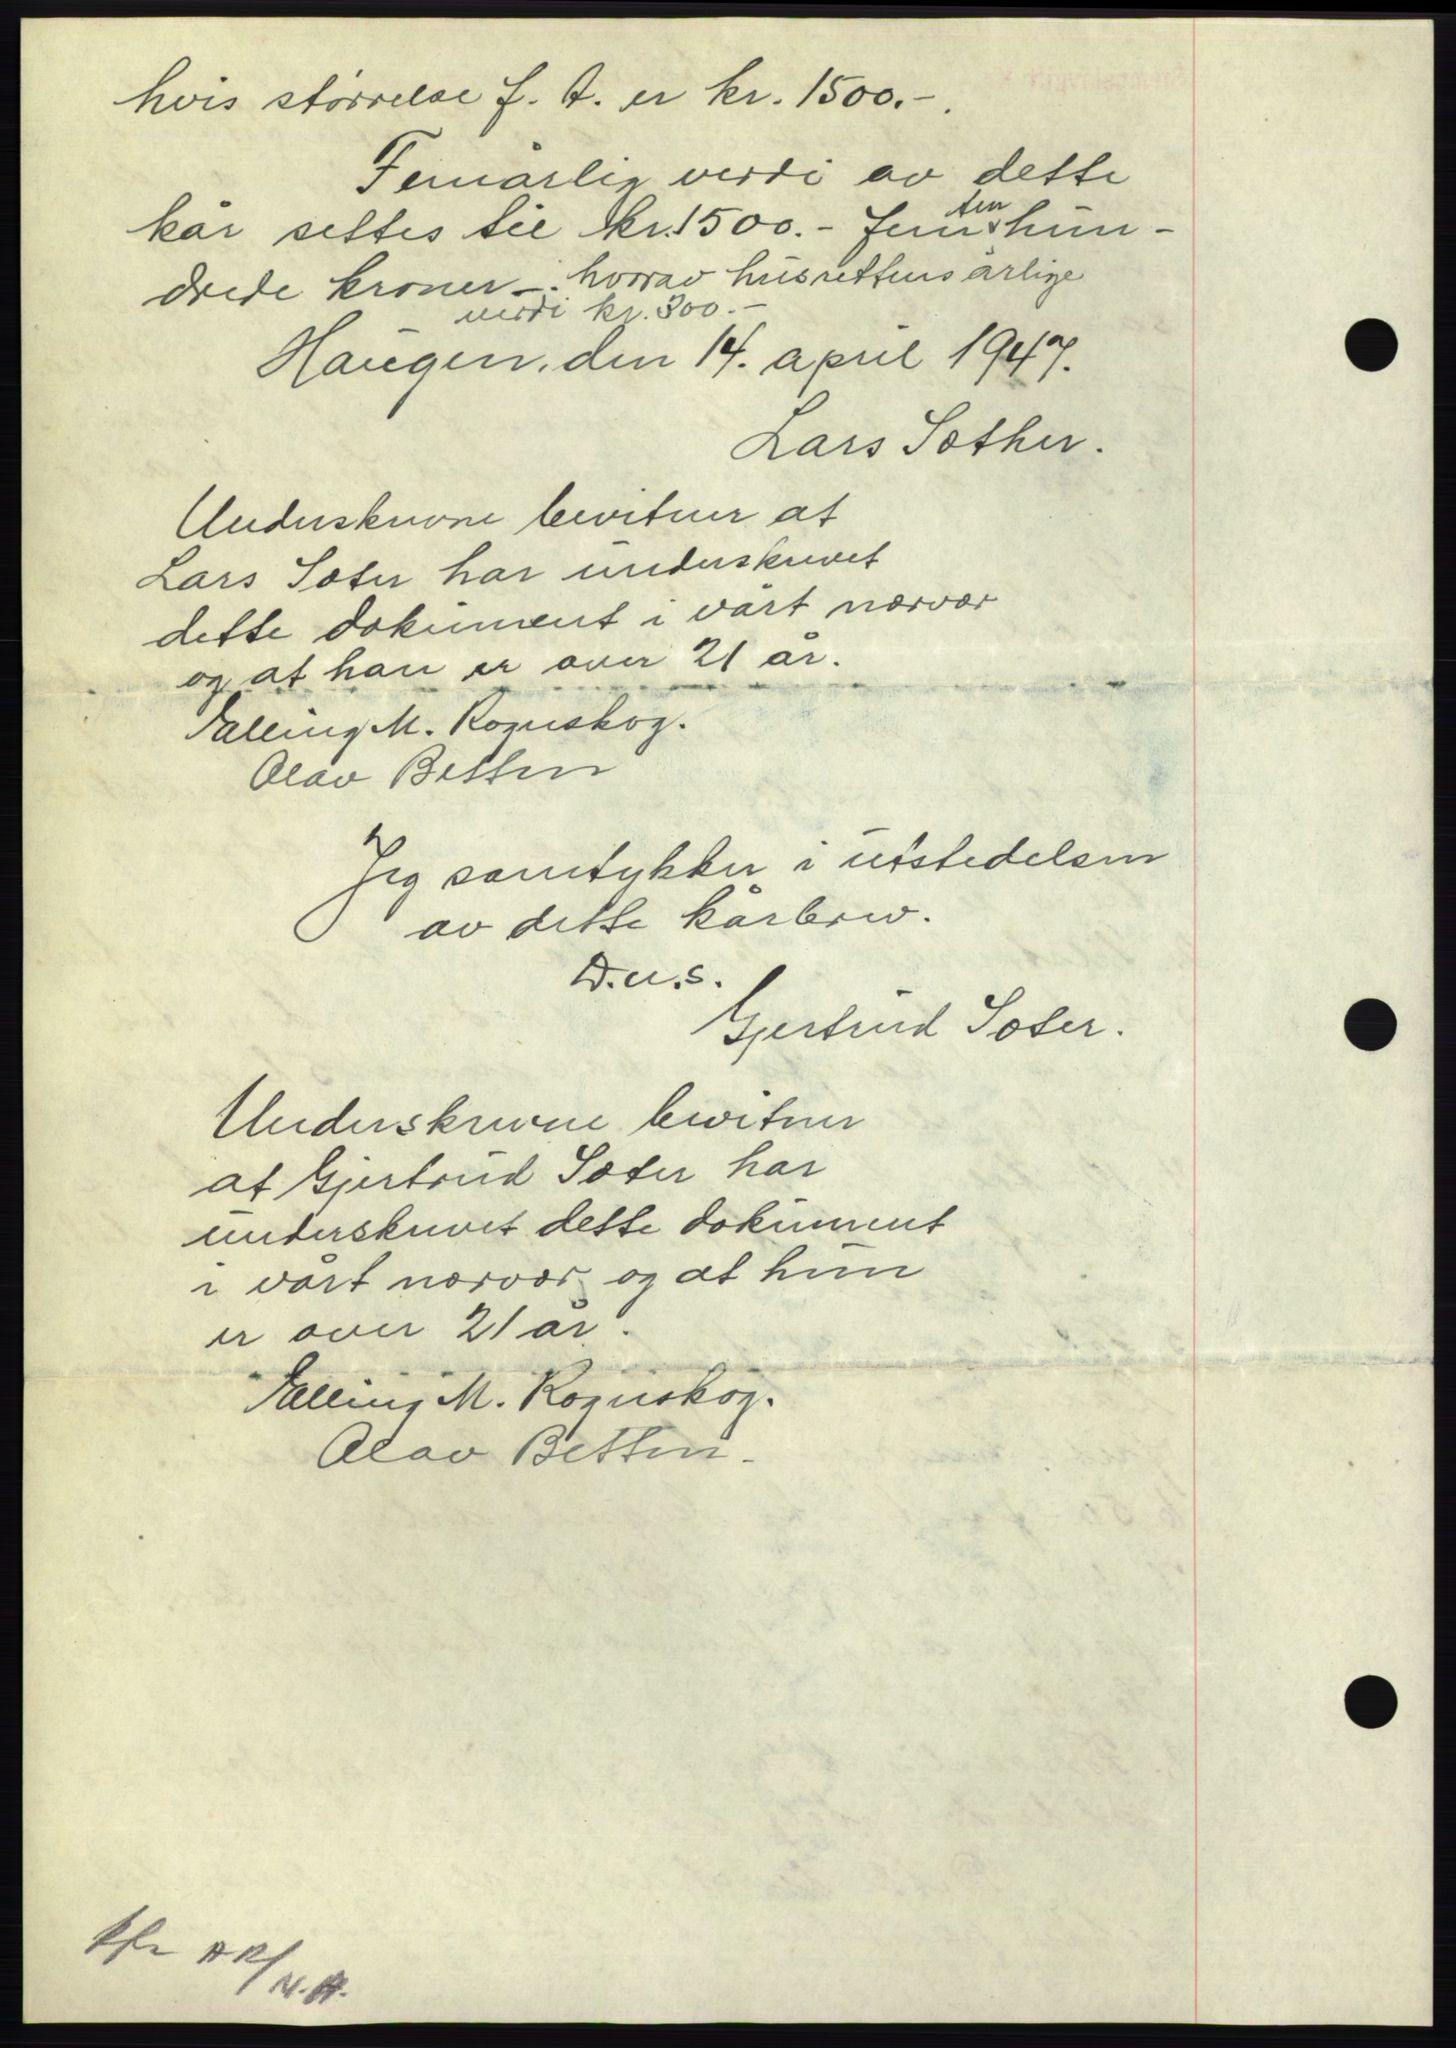 hvis størrelse f. t. er kr. 1500.-.
Femårlig verdi av dette
kår settes til kr. 1500.- femtenhun-
drede kroner -. hvorav husrettens årlige
verdi kr. 300.-
Haugen, den 14. april 1947.
Lars Sæther.
Underskrevne bevitner at
Lars Sæter har underskrevet
dette dokument i vårt nærvær
og at han er over 21 år.
Elling M. Rognskog.
Olav Betten
Jeg samtykker i utstedelsen
av dette kårbrev.
D.u.s.
Gjertrud Sæter.
Underskrevne bevitner
at Gjertrud Sæter har
underskrevet dette dokument
i vårt nærvær og at hun
er over 21 år.
Elling M. Rognskog.
Olav Betten.